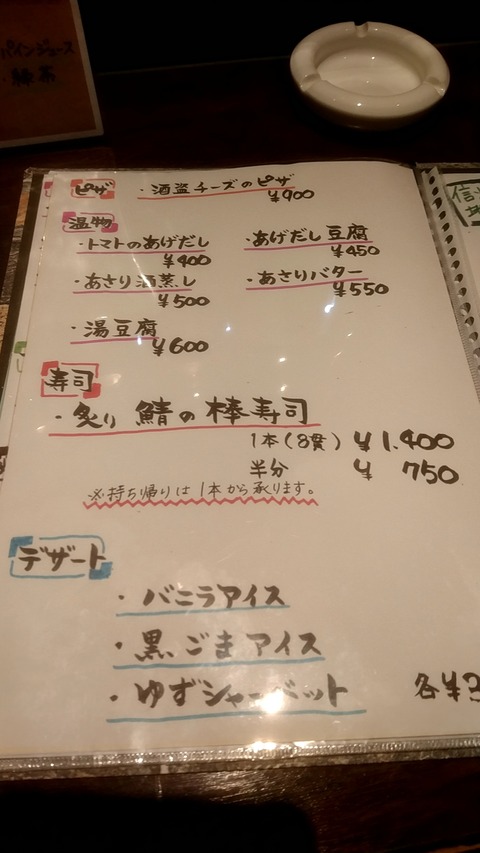 パインジュース
・緑茶
ピザ ・酒盗チーズのピザ
¥900
温物
・トマトのあげだし ・あげだし豆腐
¥400 ¥450
・あさり酒蒸し ・あさりバター
¥500 ¥550
・湯豆腐
¥600
寿司
・炙り 鯖の棒寿司
1本(8貫) ¥1,400
半分 ¥ 750
※持ち帰りは1本から承ります。
デザート
・バニラアイス
・黒ごまアイス
・ゆずシャーベット 各¥3
信